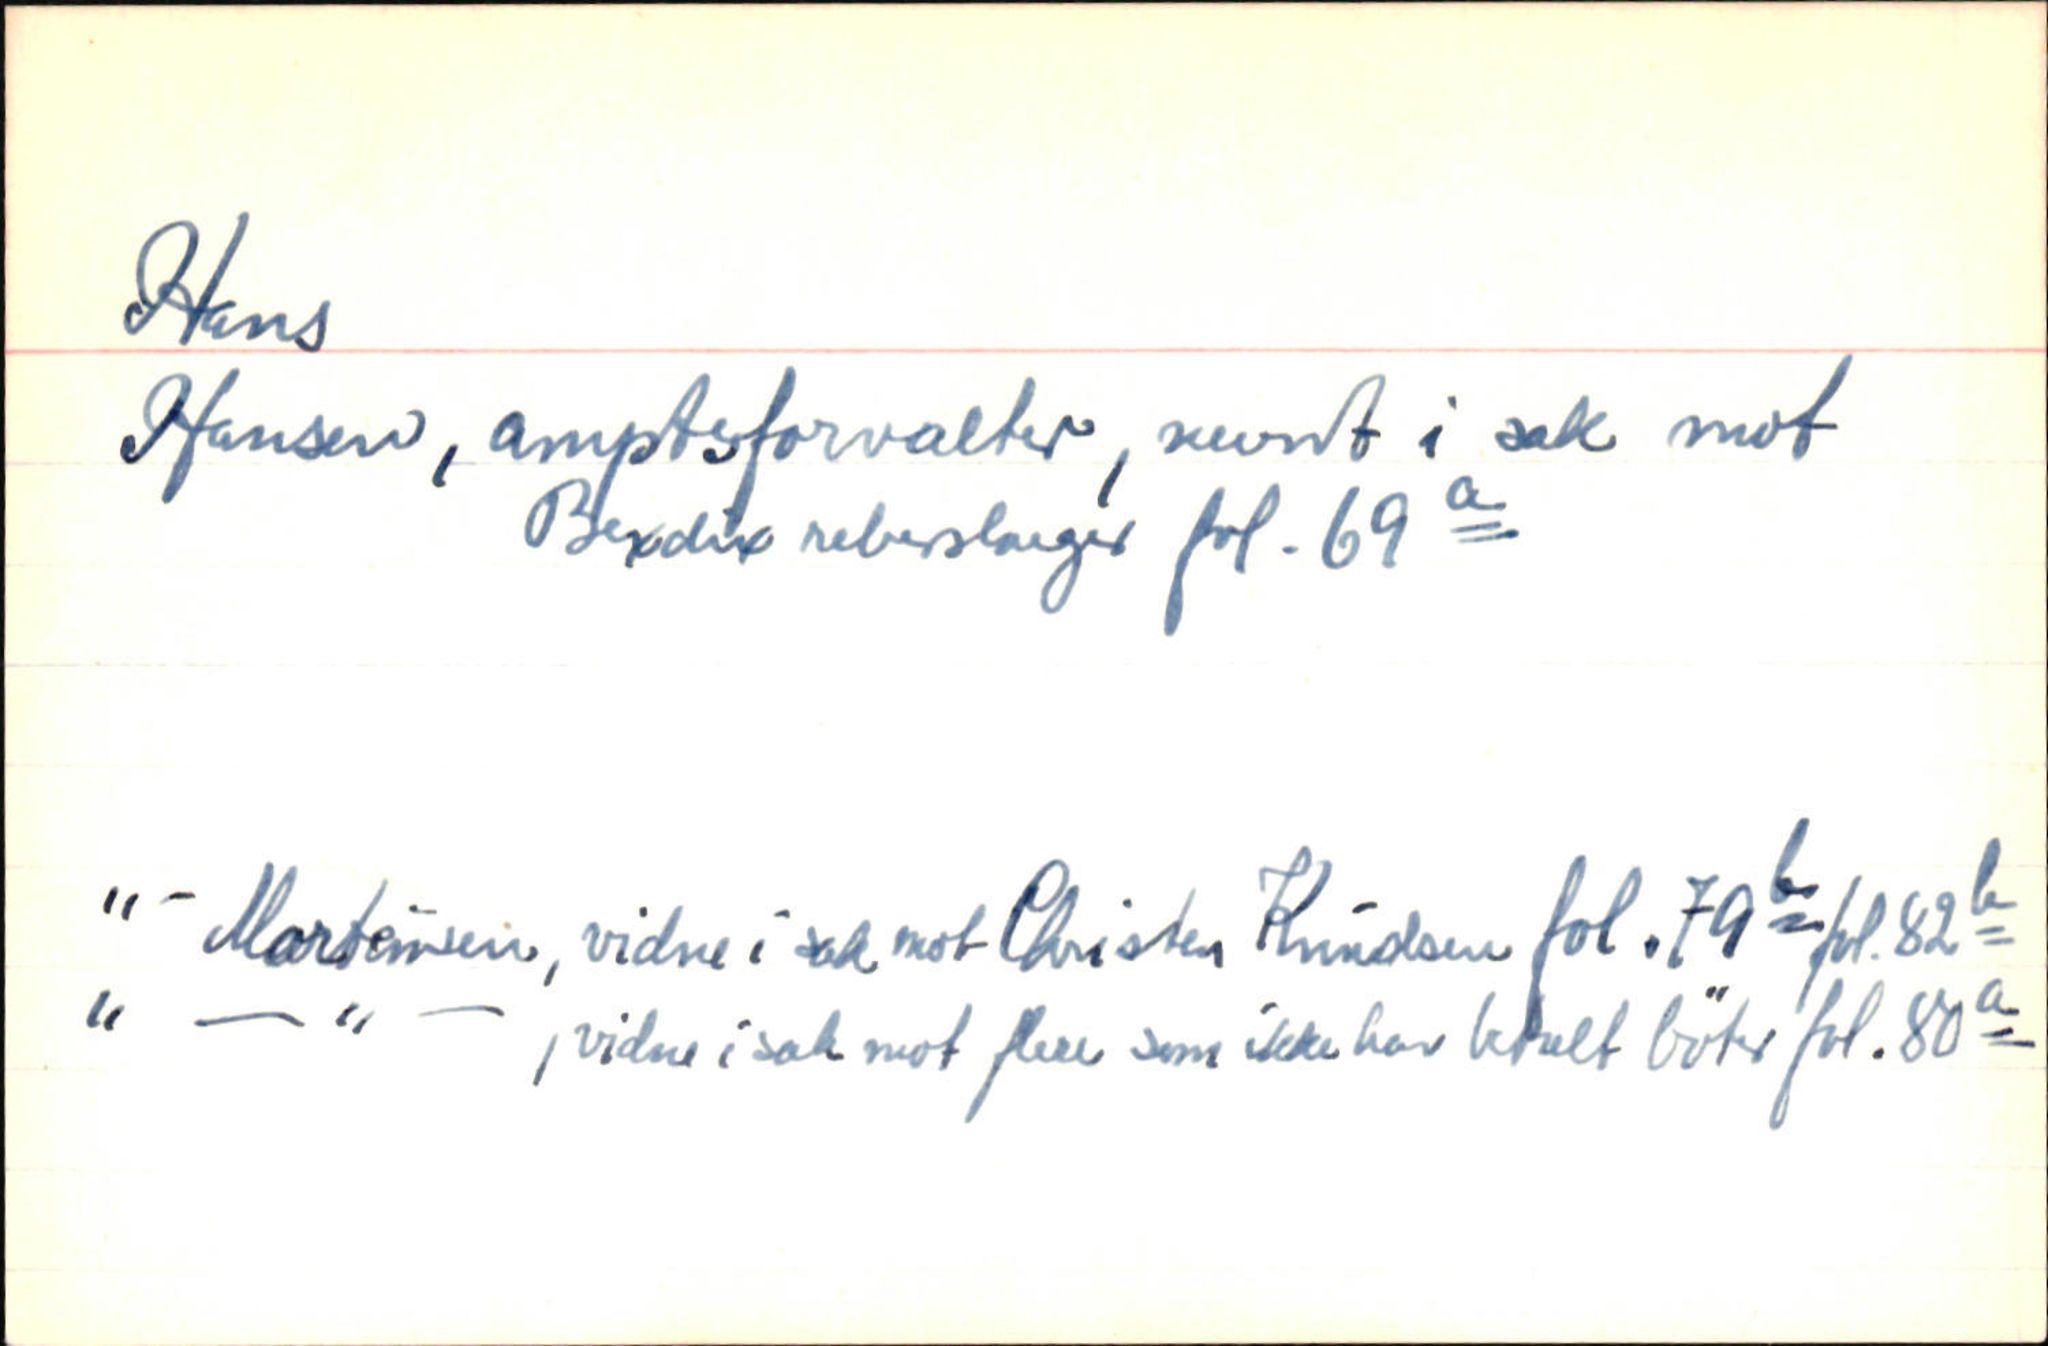 Hans
Hansen, amptsforvalter, nevnt i sak mot
Bendix reberslager fol. 69 a
" - Mortensen, vidne i sak mot Christen Knudsen fol. 79 b fol. 82 b
" — " — , vidne i sak mot flere som ikke har betalt böter fol. 80 a